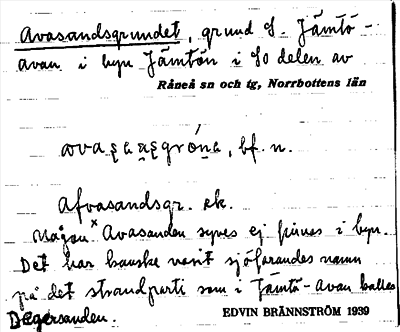 Avasandsgrundet, grund S. Jämtö-
avan i byn Jämtön i SO delen av
Råneå sn och tg, Norrbottens län
, bf. n.
Afvasandsgr. ek.
Någon x Avasanden synes ej finnas i byn.
Det har kanske varit sjöfarandes namn
på det strandparti som i Jämtö-Avan kallas
Degersanden.
EDVIN BRÄNNSTRÖM 1939